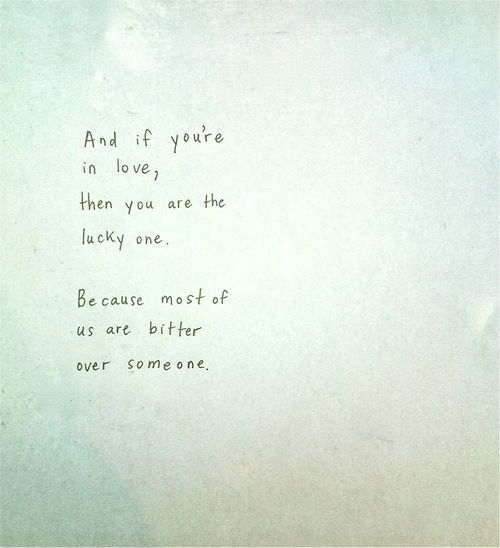 And if you're
in love,
then you are the
lucky one.
Because most of
us are bitter
over someone.